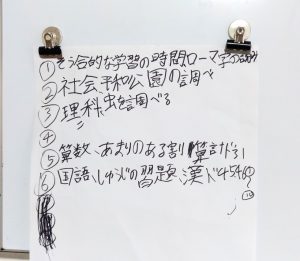 ①そう合的な学習の時間ローマ字の
②社会、平和公園の調べ
③理科、虫を調べる
④
⑤算数、あまりのある割り算
⑥国語、しゅうじの習題、漢ド45460